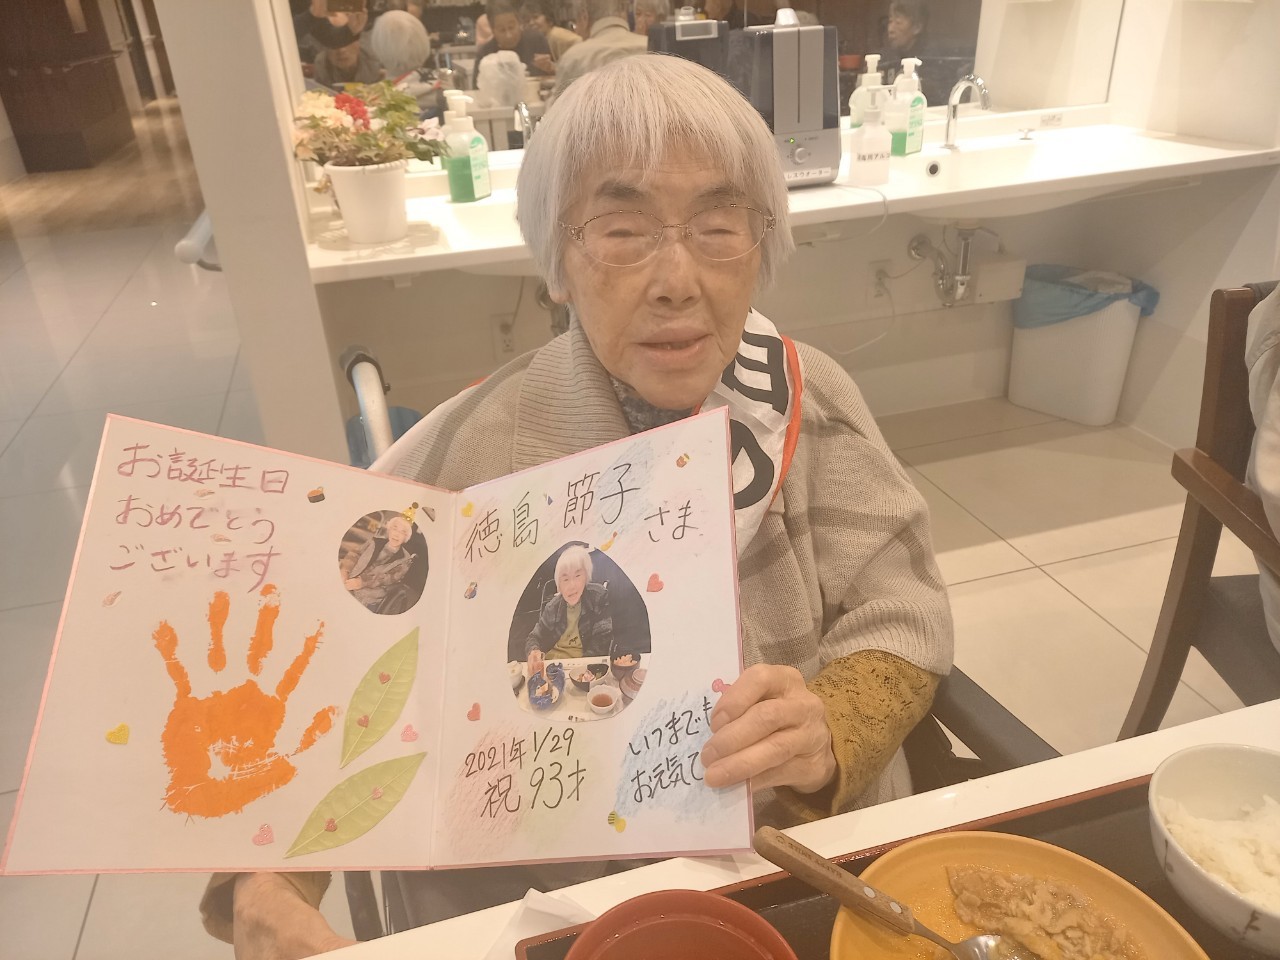 お誕生日
おめでとう
ございます
徳島 節子
さま
2021年1/29
祝93才
いつまでも
お元気で